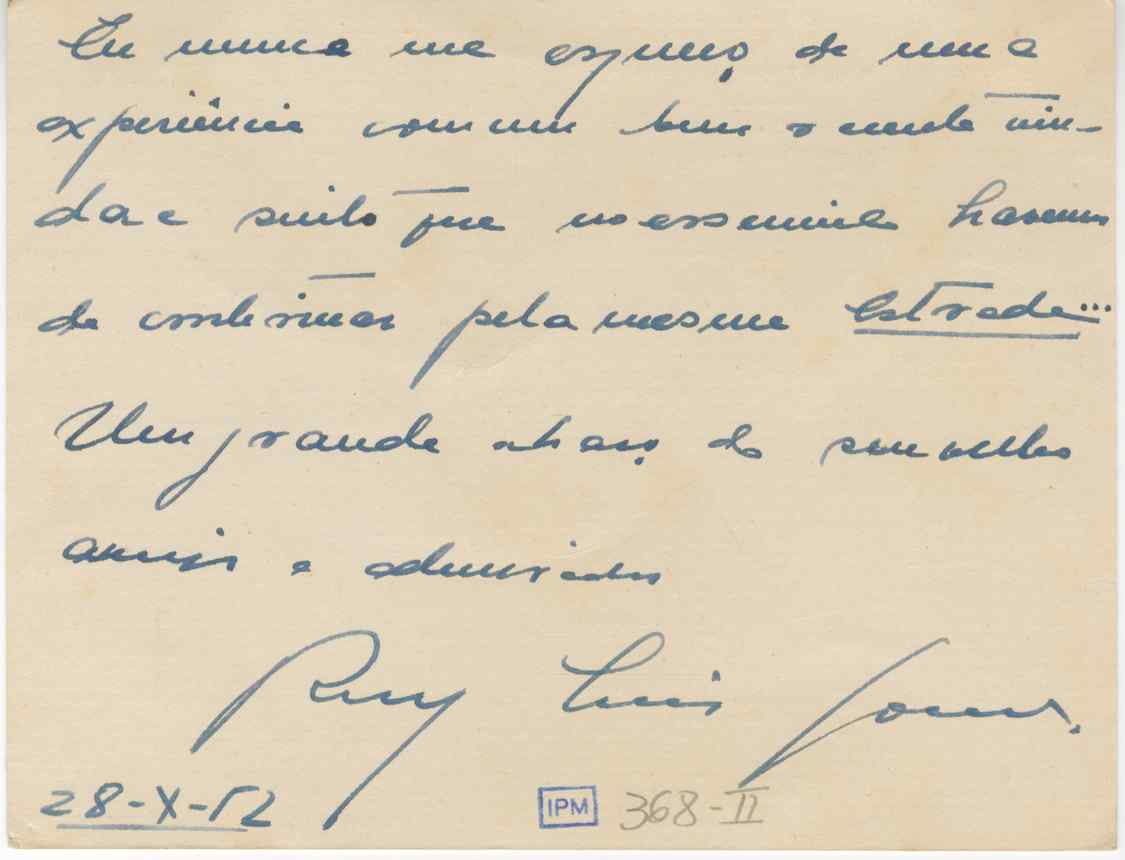 Eu nunca me esqueço de uma
experiência comum bem r vin-
da e sinto que no essencial havemos
de continuar pela mesma estrada...
Um grande abraço do seu velho
amigo e admirador
Ruy Luis Gomes.
28-X-52
IPM 368-II